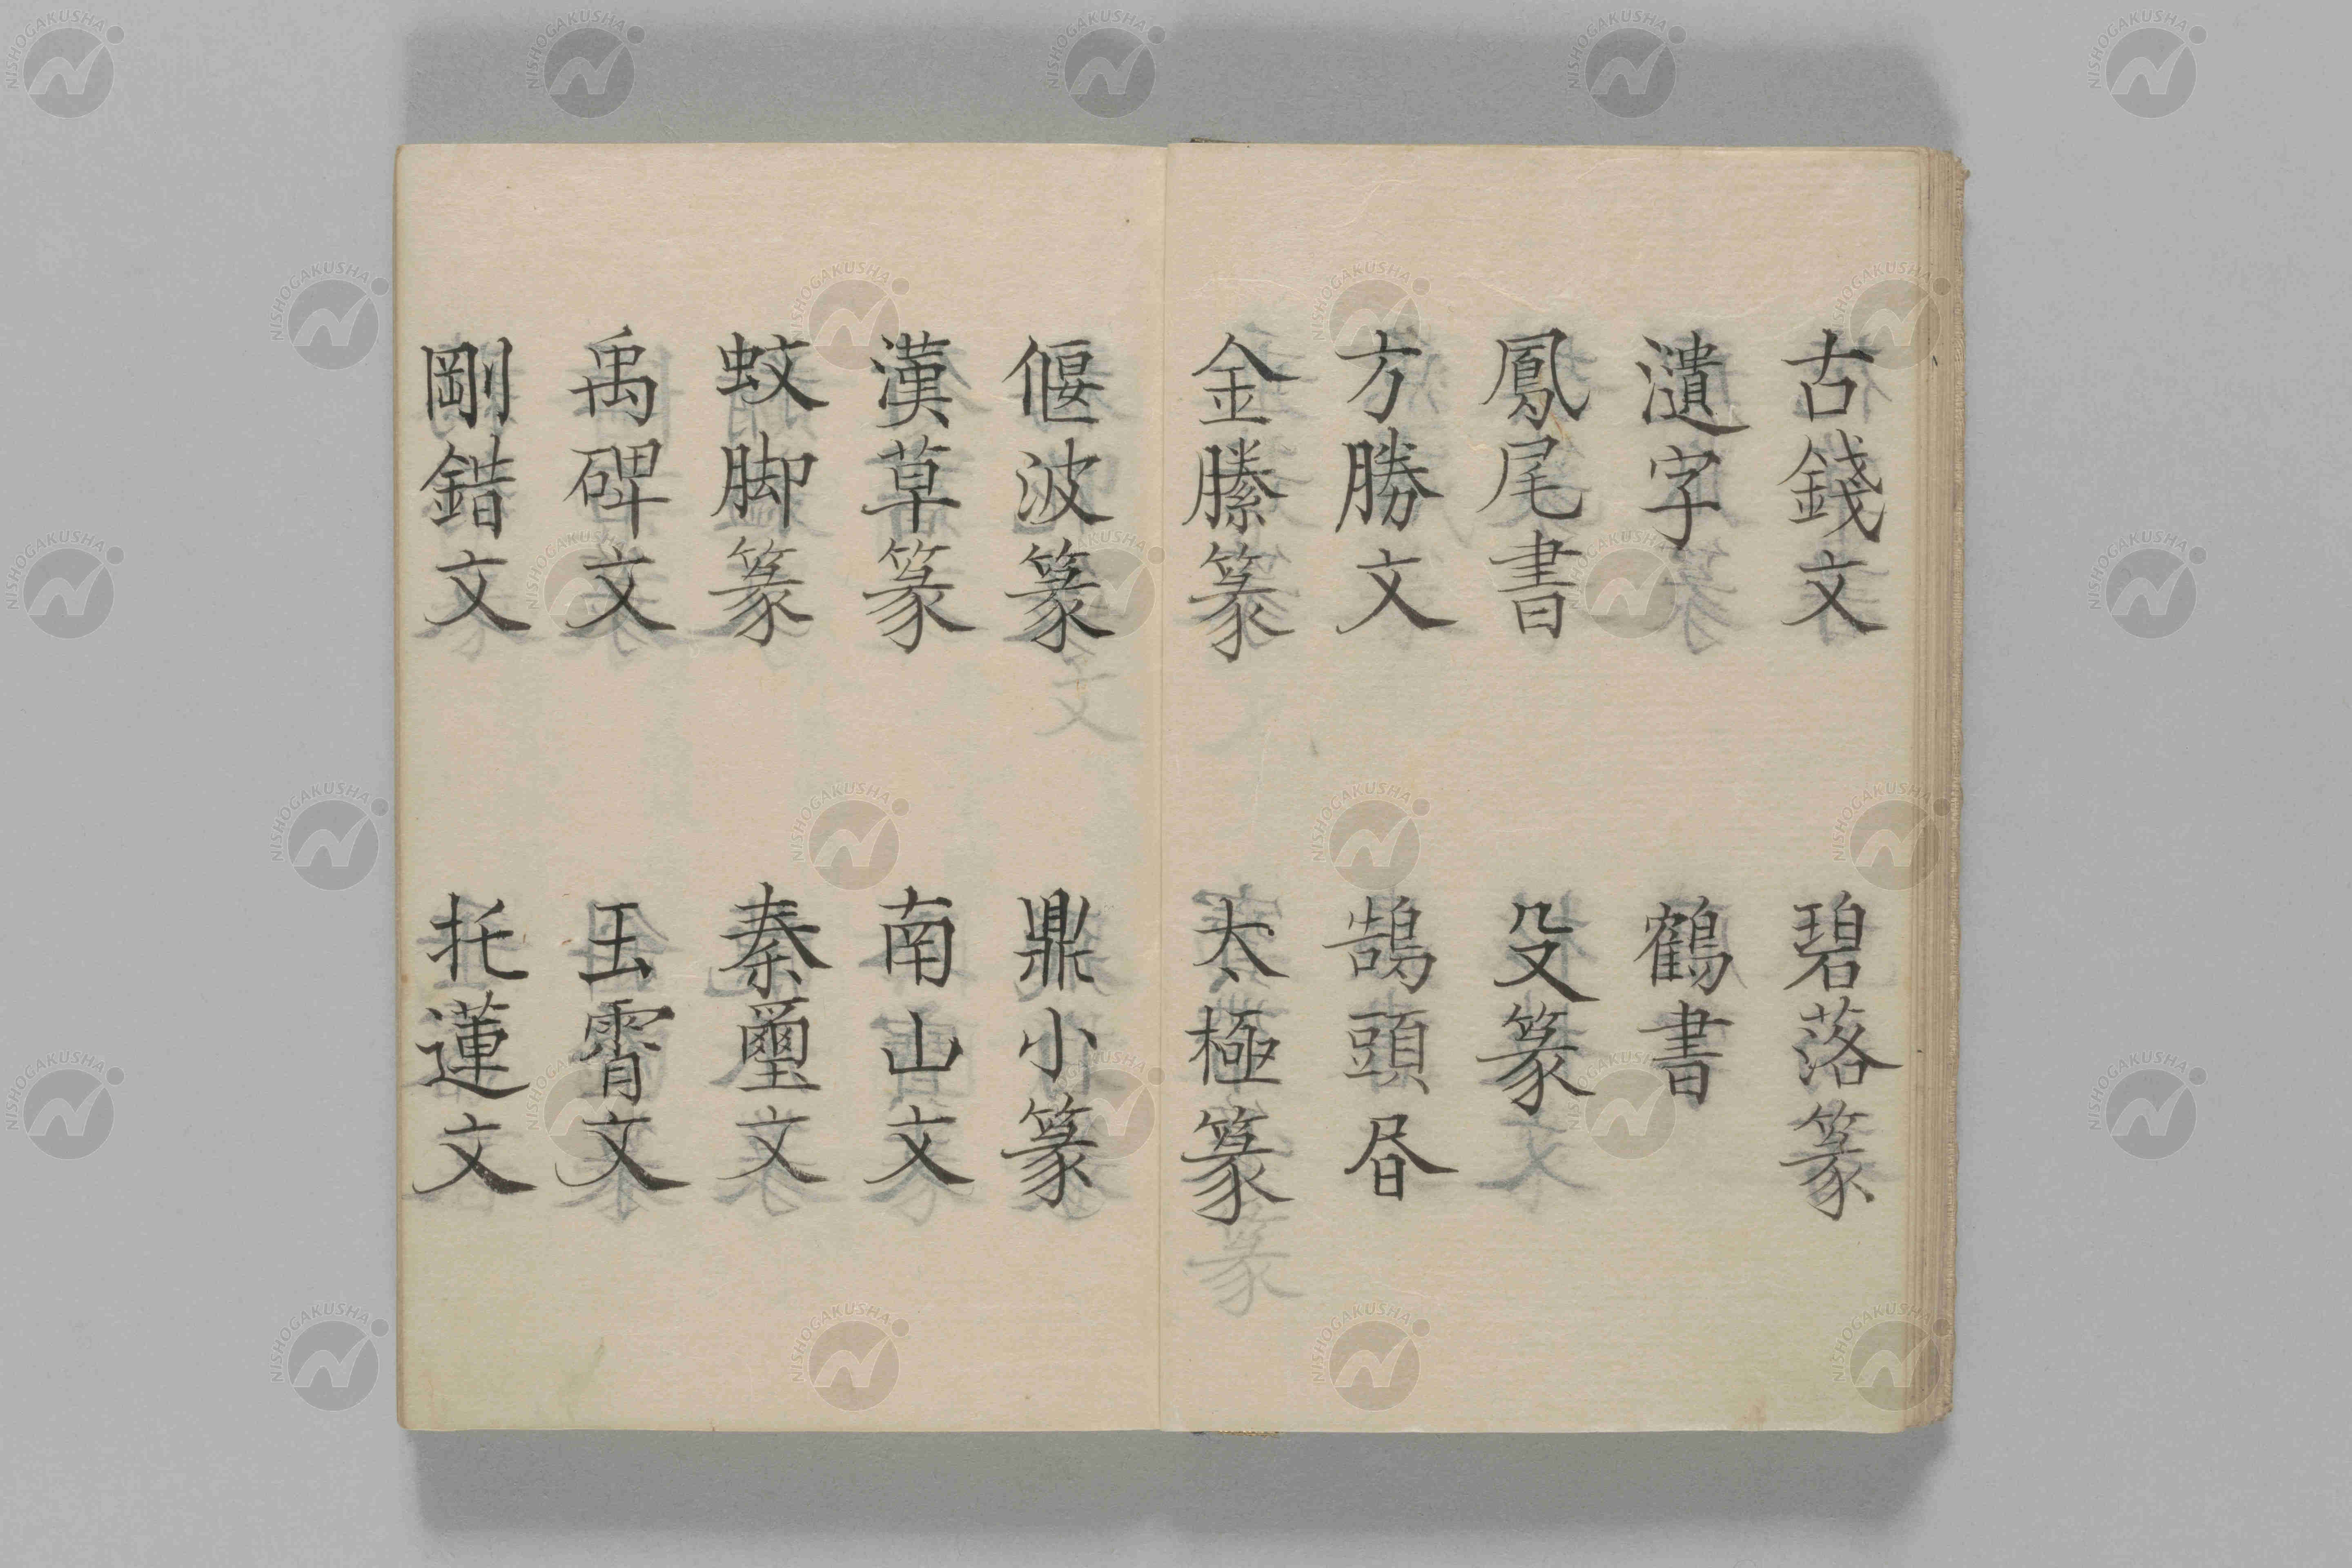 古錢文 碧落篆
遺字 鶴書
鳳尾書 殳篆
方勝文 鵠頭昏
金縢篆 太極篆
偃波篆 鼎小篆
漢草篆 南山文
蚊脚篆 秦璽文
禹碑文 玉霄文
剛錯文 托蓮文